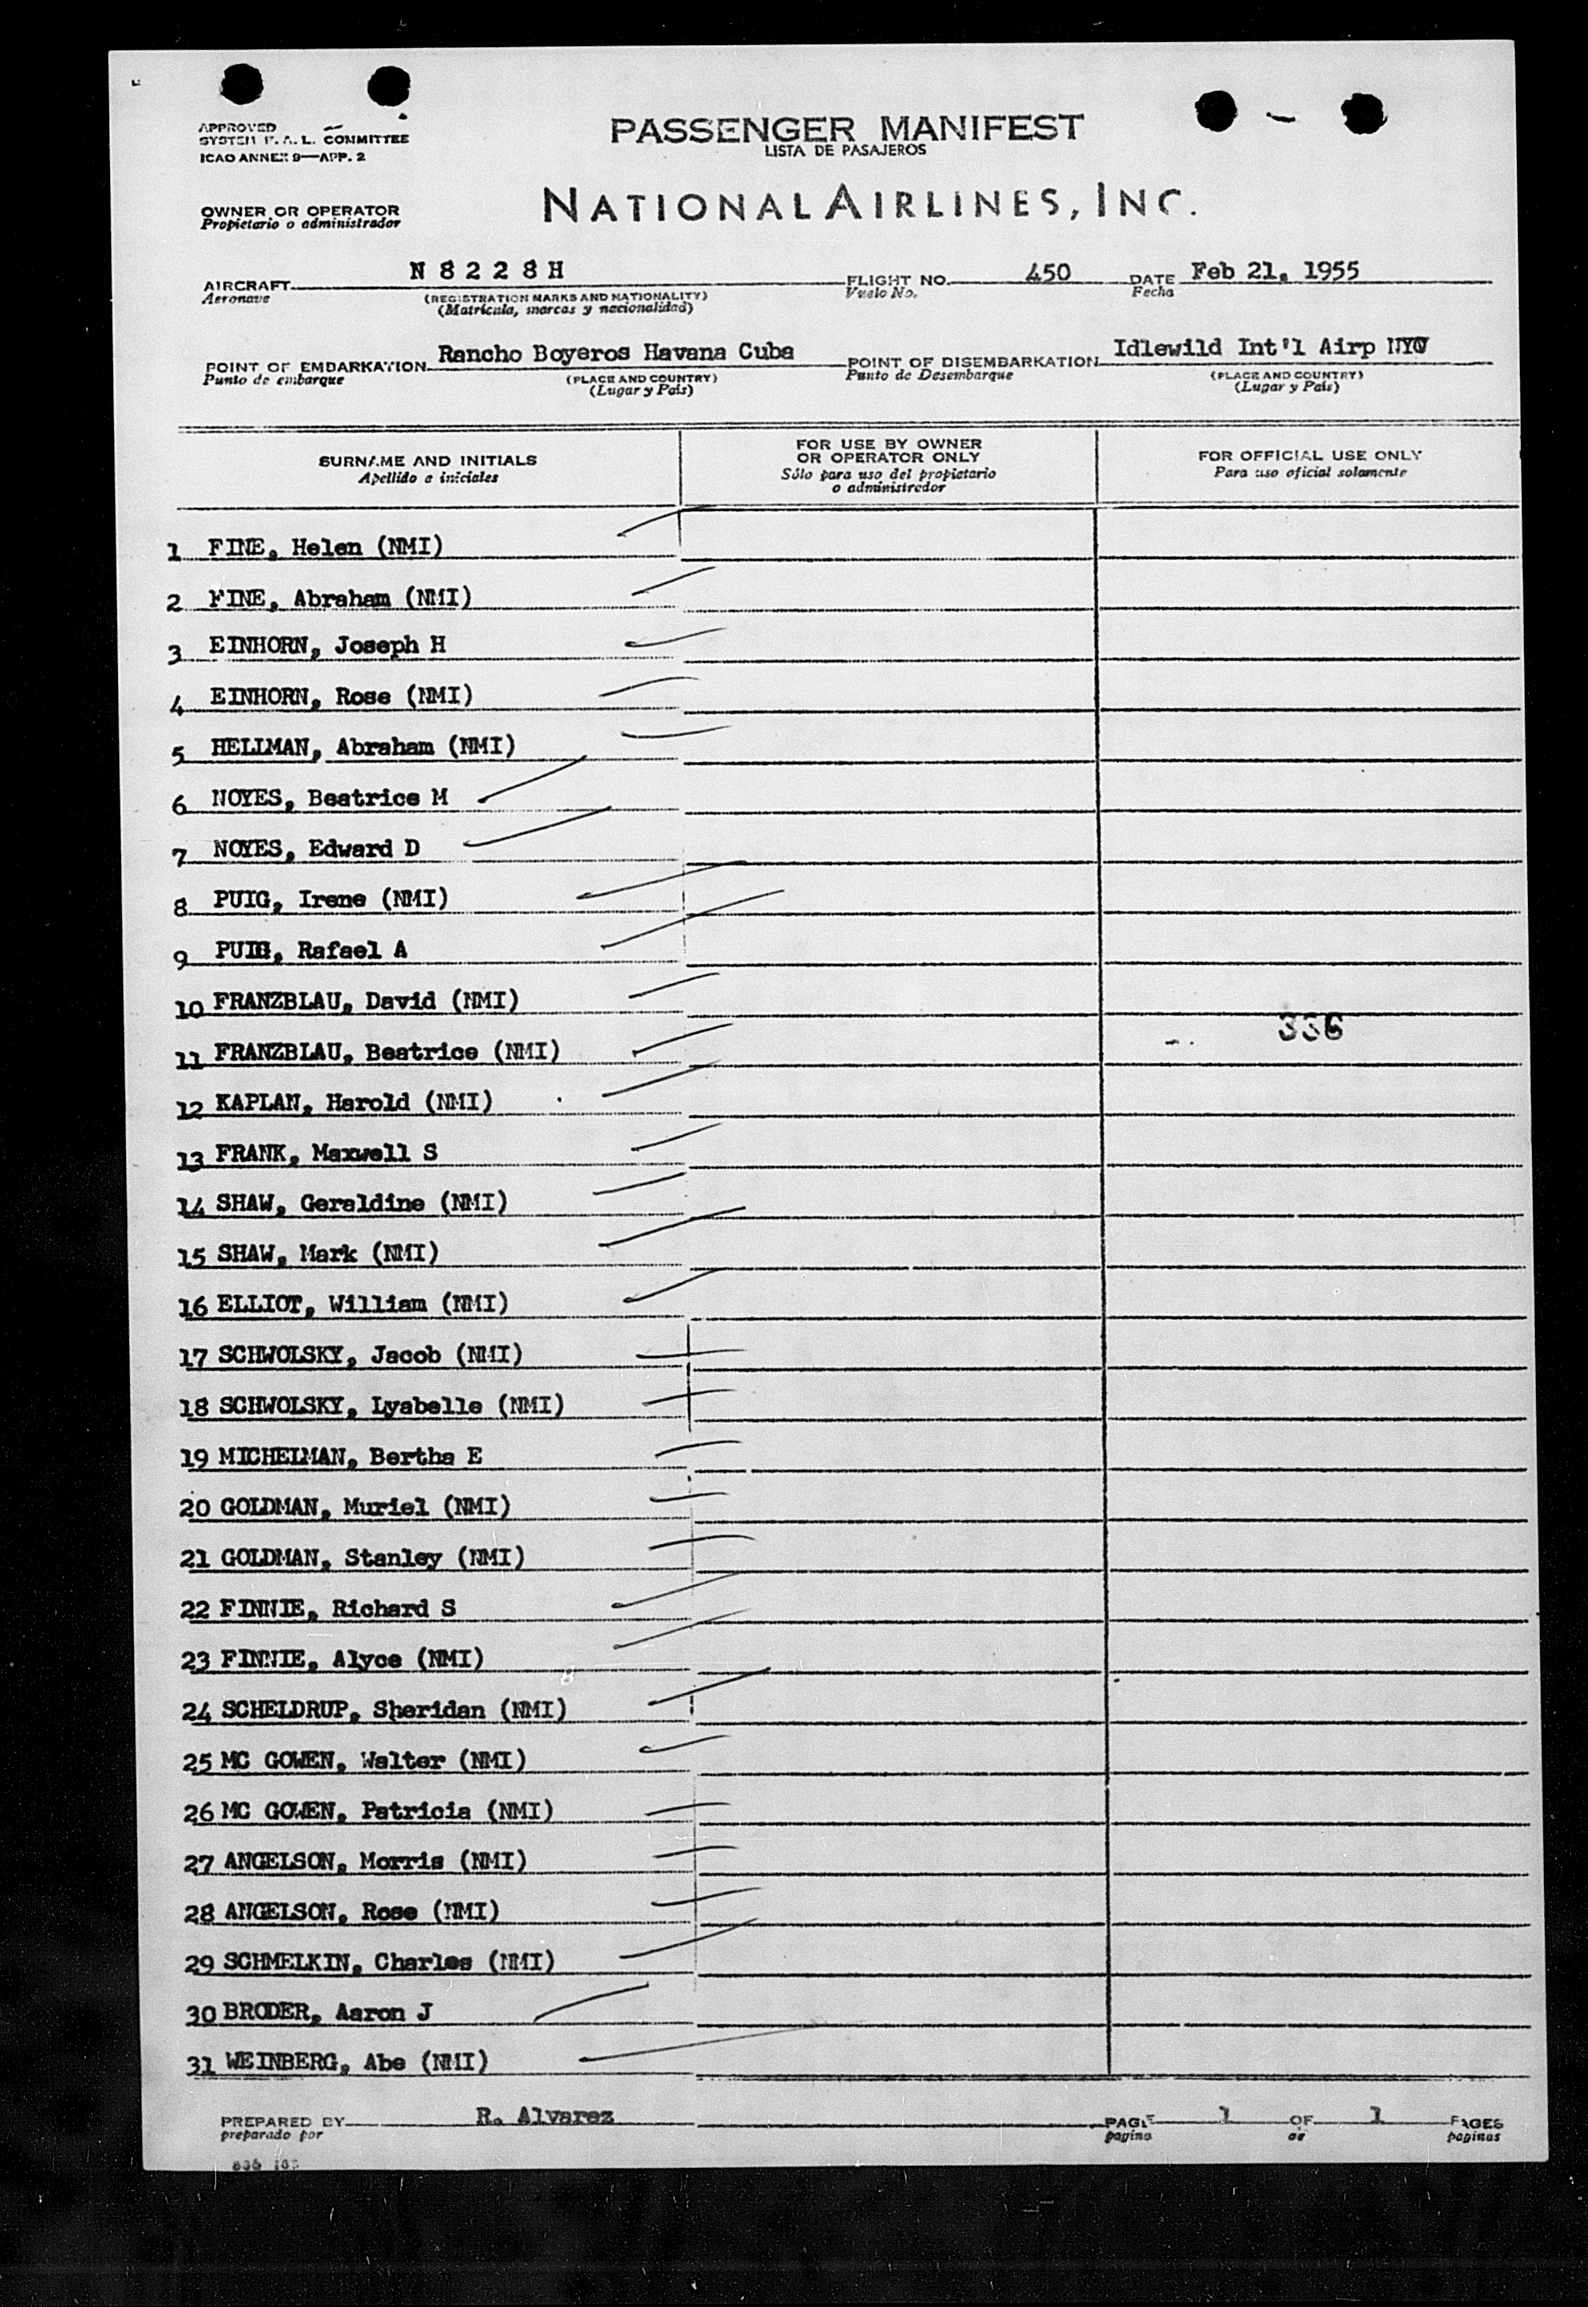 APPROVED
SYSTEM F. A. L. COMMITTEE
ICAO ANNEX 9—APP. 2
PASSENGER MANIFEST
LISTA DE PASAJEROS
NATIONAL AIRLINES, INC.
OWNER OR OPERATOR
Propietario o administrador
AIRCRAFT N 8 2 2 8 H FLIGHT NO. 450 DATE Feb 21, 1955
Aeronave (REGISTRATION MARKS AND NATIONALITY) Vuelo No. Fecha
(Matricula, marcas y nacionalidad)
POINT OF EMBARKATION Rancho Boyeros Havana Cuba POINT OF DISEMBARKATION Idlewild Int'l Airp NYC
Punto de embarque (PLACE AND COUNTRY) Punto de Desembarque (PLACE AND COUNTRY)
(Lugar y País) (Lugar y País)
SURNAME AND INITIALS
Apellido e iniciales
FOR USE BY OWNER
OR OPERATOR ONLY
Sólo para uso del propietario
o administredor
FOR OFFICIAL USE ONLY
Para uso oficial solamente
1 FINE, Helen (NMI)
2 FINE, Abraham (NMI)
3 EINHORN, Joseph H
4 EINHORN, Rose (NMI)
5 HELLMAN, Abraham (NMI)
6 NOYES, Beatrice M
7 NOYES, Edward D
8 PUIG, Irene (NMI)
9 PUIG, Rafael A
10 FRANZBLAU, David (NMI)
336
11 FRANZBLAU, Beatrice (NMI)
12 KAPLAN, Harold (NMI)
13 FRANK, Maxwell S
14 SHAW, Geraldine (NMI)
15 SHAW, Mark (NMI)
16 ELLIOT, William (NMI)
17 SCHWOLSKY, Jacob (NMI)
18 SCHWOLSKY, Lyabelle (NMI)
19 MICHELMAN, Bertha E
20 GOLDMAN, Muriel (NMI)
21 GOLDMAN, Stanley (NMI)
22 FINNIE, Richard S
23 FINNIE, Alyce (NMI)
24 SCHELDRUP, Sheridan (NMI)
25 MC GOWEN, Walter (NMI)
26 MC GOWEN, Patricia (NMI)
27 ANGELSON, Morris (NMI)
28 ANGELSON, Rose (NMI)
29 SCHMELKIN, Charles (NMI)
30 BRODER, Aaron J
31 WEINBERG, Abe (NMI)
PREPARED BY R. Alvarez PAGE 1 OF 1 PAGES
preparado por pagina de paginas